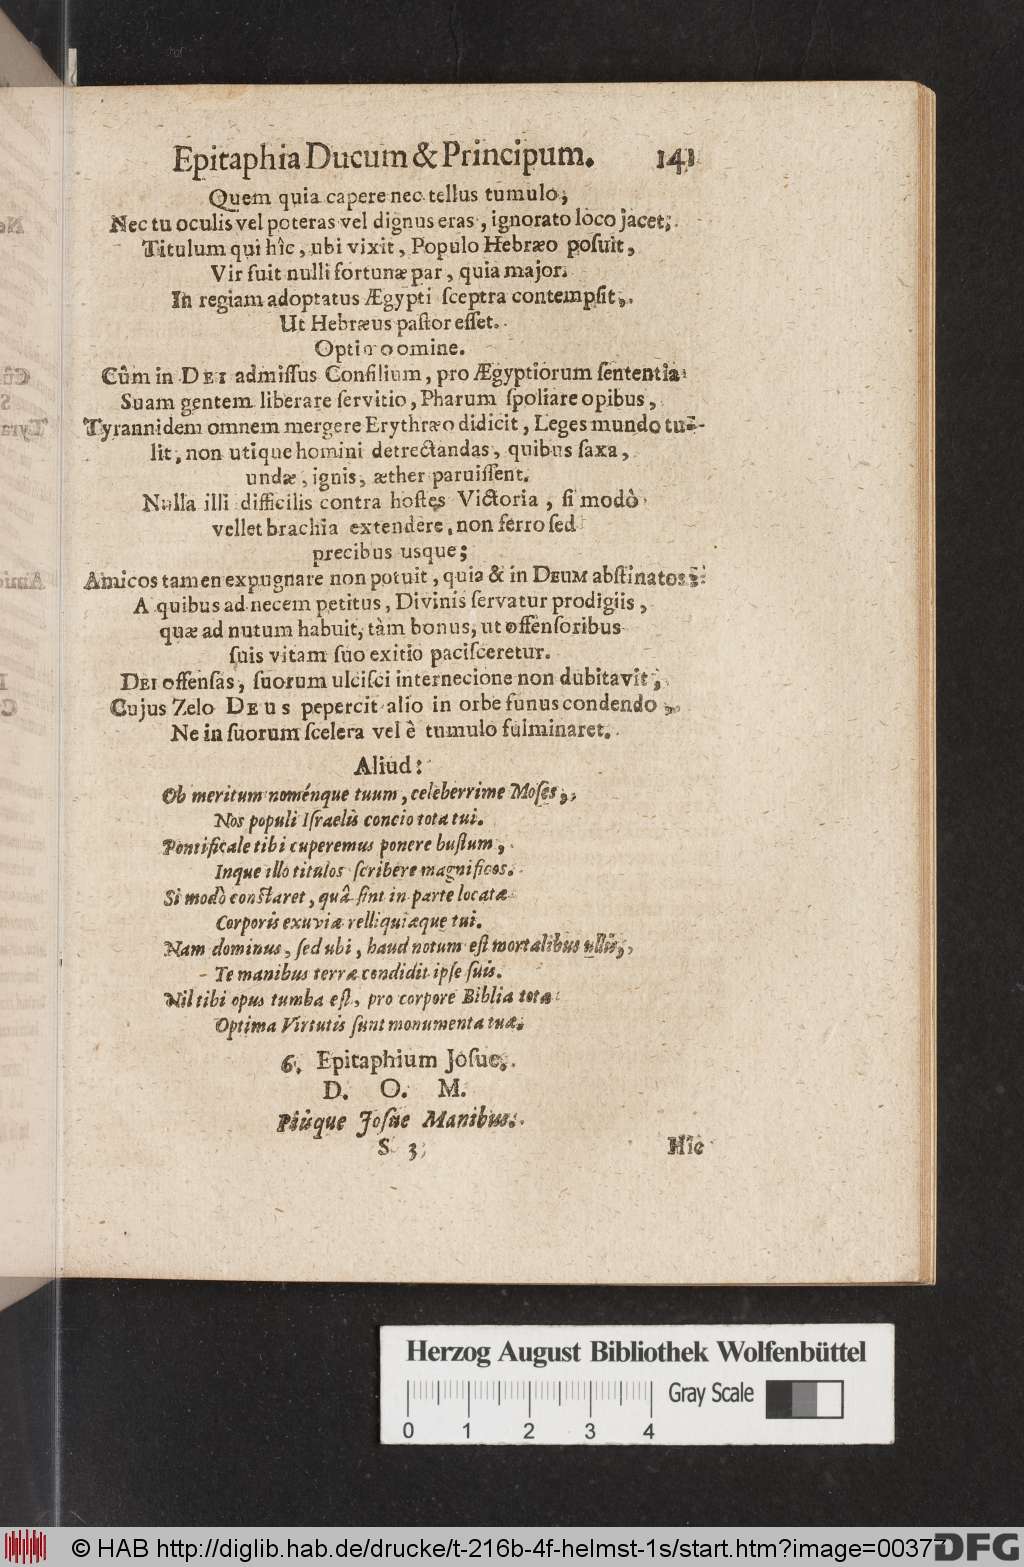 Epitaphia Ducum & Principum. 141
Quem quia capere nec tellus tumulo;
Nec tu oculis vel poteras vel dignus eras, ignorato loco jacet;
Titulum qui hîc, ubi vixit, Populo Hebræo posuit,
Vir fuit nulli fortunæ par, quia major.
In regiam adoptatus Ægypti sceptra contempsit,
Ut Hebræus pastor esset.
Optimo omine.
Cûm in DEI admissus Consilium, pro Ægyptiorum sententia
Suam gentem liberare servitio, Pharum spoliare opibus,
Tyrannidem omnem mergere Erythræo didicit, Leges mundo tu-
lit, non utique homini detrectandas, quibus saxa,
undæ, ignis, æther paruissent.
Nulla illi difficilis contra hostes Victoria, si modò
vellet brachia extendere, non ferro sed
precibus usque;
Amicos tamen expugnare non potuit, quia & in DEUM abstinatos;
A quibus ad necem petitus, Divinis servatur prodigiis,
quæ ad nutum habuit, tàm bonus, ut offensoribus
suis vitam suo exitio pacisceretur.
DEI offensas, suorum ulcisci internecione non dubitavit;
Cujus Zelo DEUS pepercit alio in orbe funus condendo,
Ne in suorum scelera vel è tumulo fulminaret.
Aliud:
Ob meritum noménque tuum, celeberrime Moses,
Nos populi Israelis concio tota tui.
Pontificale tibi cuperemus ponere bustum,
Inque illo titulos scribere magnificos.
Si modò constaret, quâ sint in parte locatæ
Corporis exuviæ relliquiæque tui.
Nam dominus, sed ubi, haud notum est mortalibus ullis,
Te manibus terræ condidit ipse suis.
Nil tibi opus tumba est, pro corpore Biblia tota
Optima Virtutis sunt monumenta tuæ.
6. Epitaphium Josue.
D. O. M.
Piisque Josue Manibus.
S 3 Hîc
Herzog August Bibliothek Wolfenbüttel
Gray Scale
0 1 2 3 4
© HAB http://diglib.hab.de/drucke/t-216b-4f-helmst-1s/start.htm?image=00377
DFG